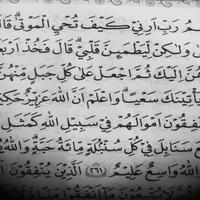 ـم رَبِّ اَرِنِيْ كَيْفَ تُحْيِ الْمَوْتٰىؕ قَا
وَلٰكِنْ لِّيَطْمَئِنَّ قَلْبِيْؕ قَالَ فَخُذْ اَرْبَعَ
ـهُنَّ اِلَيْكَ ثُمَّ اجْعَلْ عَلٰى كُلِّ جَبَلٍ مِّنْهُنَّ
يَاْتِيْنَكَ سَعْيًاؕ وَاعْلَمْ اَنَّ اللّٰهَ عَزِيْزٌ حَكِيْمٌ
يُنْفِقُوْنَ اَمْوَالَهُمْ فِيْ سَبِيْلِ اللّٰهِ كَمَثَلِ
سَنَابِلَ فِيْ كُلِّ سُنْۢبُلَةٍ مِّائَةُ حَبَّةٍؕ وَاللّٰهُ
وَاللّٰهُ وَاسِعٌ عَلِيْمٌ ﴿٢٦١﴾ اَلَّذِيْنَ يُنْفِقُوْنَ